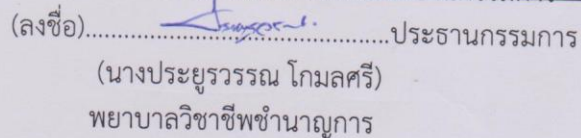 (ลงชื่อ)..................................................ประธานกรรมการ
(นางประยูรวรรณ โกมลศรี)
พยาบาลวิชาชีพชำนาญการ